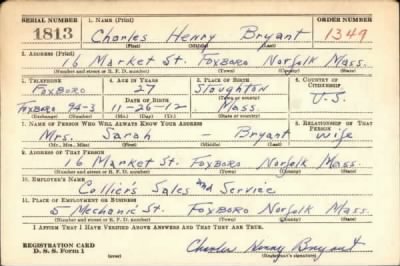 SERIAL NUMBER 1. NAME (Print) ORDER NUMBER
1813 Charles Henry Bryant 1349
(First) (Middle) (Last)
2. ADDRESS (Print)
16 Market St. Foxboro Norfolk Mass.
(Number and street or R. F. D. number) (Town) (County) (State)
3. TELEPHONE 4. AGE IN YEARS 5. PLACE OF BIRTH 6. COUNTRY OF CITIZENSHIP
Foxboro 27 Stoughton
(Town or county)
DATE OF BIRTH U.S.
Foxboro 94-3 11-26-12 Mass.
(Exchange) (Number) (Mo.) (Day) (Yr.) (State or country)
7. NAME OF PERSON WHO WILL ALWAYS KNOW YOUR ADDRESS 8. RELATIONSHIP OF THAT PERSON
Mrs. Sarah - Bryant wife
(Mr., Mrs., Miss) (First) (Middle) (Last)
9. ADDRESS OF THAT PERSON
16 Market St. Foxboro Norfolk Mass.
(Number and street or R. F. D. number) (Town) (County) (State)
10. EMPLOYER'S NAME
Collier's Sales and Service
11. PLACE OF EMPLOYMENT OR BUSINESS
5 Mechanic St. Foxboro Norfolk Mass.
(Number and street or R. F. D. number) (Town) (County) (State)
I AFFIRM THAT I HAVE VERIFIED ABOVE ANSWERS AND THAT THEY ARE TRUE.
REGISTRATION CARD
D. S. S. Form 1 Charles Henry Bryant
(over) (Registrant's signature)